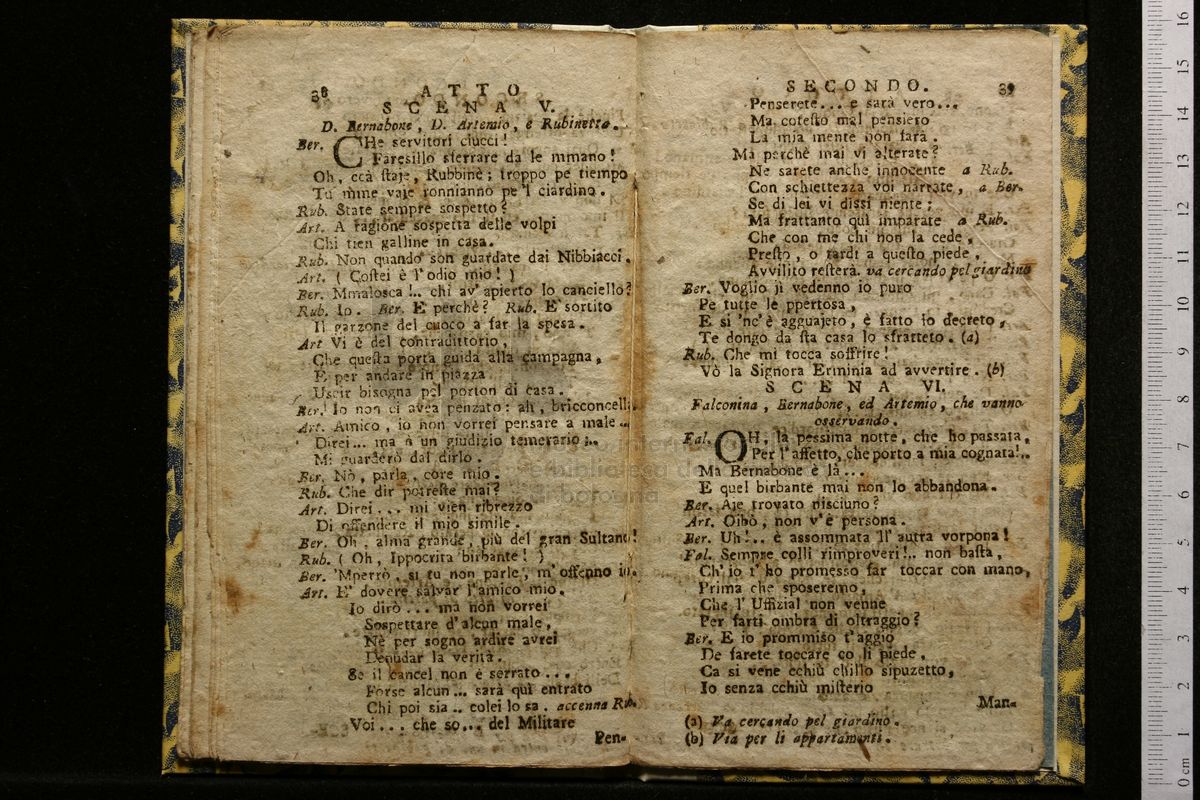 38
ATTO
SCENA V.
D. Bernabone, D. Artemio, e Rubinetta.
Ber. CHe servitori ciucci!
Faresillo sferrare da le mmano!
Oh, ccà ſtaje, Rubbinè; troppo pe tiempo
Tu mme vaje ronnianno pe 'l ciardino.
Rub. State sempre sospetto?
Art. A ragione sospetta delle volpi
Chi tien galline in casa.
Rub. Non quando son guardate dai Nibbiacci.
Art. ( Coſtei è l'odio mio! )
Ber. Mmalosca!.. chi av' apierto lo canciello?
Rub. Io. Ber. E perchè? Rub. E' sortito
Il garzone del cuoco a far la spesa.
Art Vi è del contradittorio,
Che queſta porta guida alla campagna,
E per andare in piazza
Uscir bisogna pel porton di casa.
Ber. Io non ci avea penzato: ah, bricconcella.
Art. Amico, io non vorrei pensare a male...
Direi... ma è un giudizio temerario;..
Mi guarderò dal dirlo.
Ber. Nò, parla, core mio.
Rub. Che dir potreſte mai?
Art. Direi... mi vien ribrezzo
Di offendere il mio simile.
Ber. Oh, alma grande, più del gran Sultano!
Rub. ( Oh, Ippocrita birbante! )
Ber. 'Mperrò, si tu non parle, m' offenno io.
Art. E' dovere salvar l'amico mio.
Io dirò... ma non vorrei
Sospettare d'alcun male,
Nè per sogno ardire avrei
Denudar la verità.
Se il cancel non è serrato...
Forse alcun... sarà quì entrato
Chi poi sia.. colei lo sa. accenna Rub.
Voi... che so... del Militare
Pen-
SECONDO.
39
Penserete... e sarà vero...
Ma coteſto mal pensiero
La mia mente non farà.
Ma perchè mai vi alterate?
Ne sarete anche innocente a Rub.
Con schiettezza voi narrate, a Ber.
Se di lei vi dissi niente;
Ma frattanto quì imparate a Rub.
Che con me chi non la cede,
Preſto, o tardi a queſto piede,
Avvilito reſterà. va cercando pel giardino
Ber. Voglio jì vedenno io puro
Pe tutte le ppertosa,
E si 'nc' è agguajeto, è fatto lo decreto,
Te dongo da ſta casa lo sfratteto. (a)
Rub. Che mi tocca soffrire!
Vò la Signora Erminia ad avvertire. (b)
SCENA VI.
Falconina, Bernabone, ed Artemio, che vanno
osservando.
Fal. OH, la pessima notte, che ho passata,
Per l'affetto, che porto a mia cognata!..
Ma Bernabone è là...
E quel birbante mai non lo abbandona.
Ber. Aje trovato nisciuno?
Art. Oibò, non v'è persona.
Ber. Uh!.. è assommata ll' autra vorpona!
Fal. Sempre colli rimproveri!.. non baſta,
Ch' io t' ho promesso far toccar con mano,
Prima che sposeremo,
Che l' Uffizial non venne
Per farti ombra di oltraggio?
Ber. E io prommiso t'aggio
De farete toccare co li piede,
Ca si vene cchiù chillo sipuzetto,
Io senza cchiù miſterio
Man-
(a) Va cercando pel giardino.
(b) Via per li appartamenti.